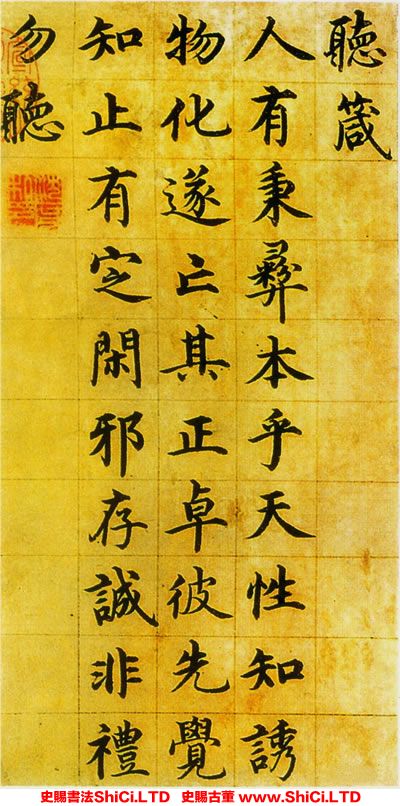 聽箴
人有秉彝本乎天性知誘
物化遂亡其正卓彼先覺
知止有定閑邪存誠非禮
勿聽
史賜書法ShiCi.LTD 史賜古董 www.ShiCi.LTD